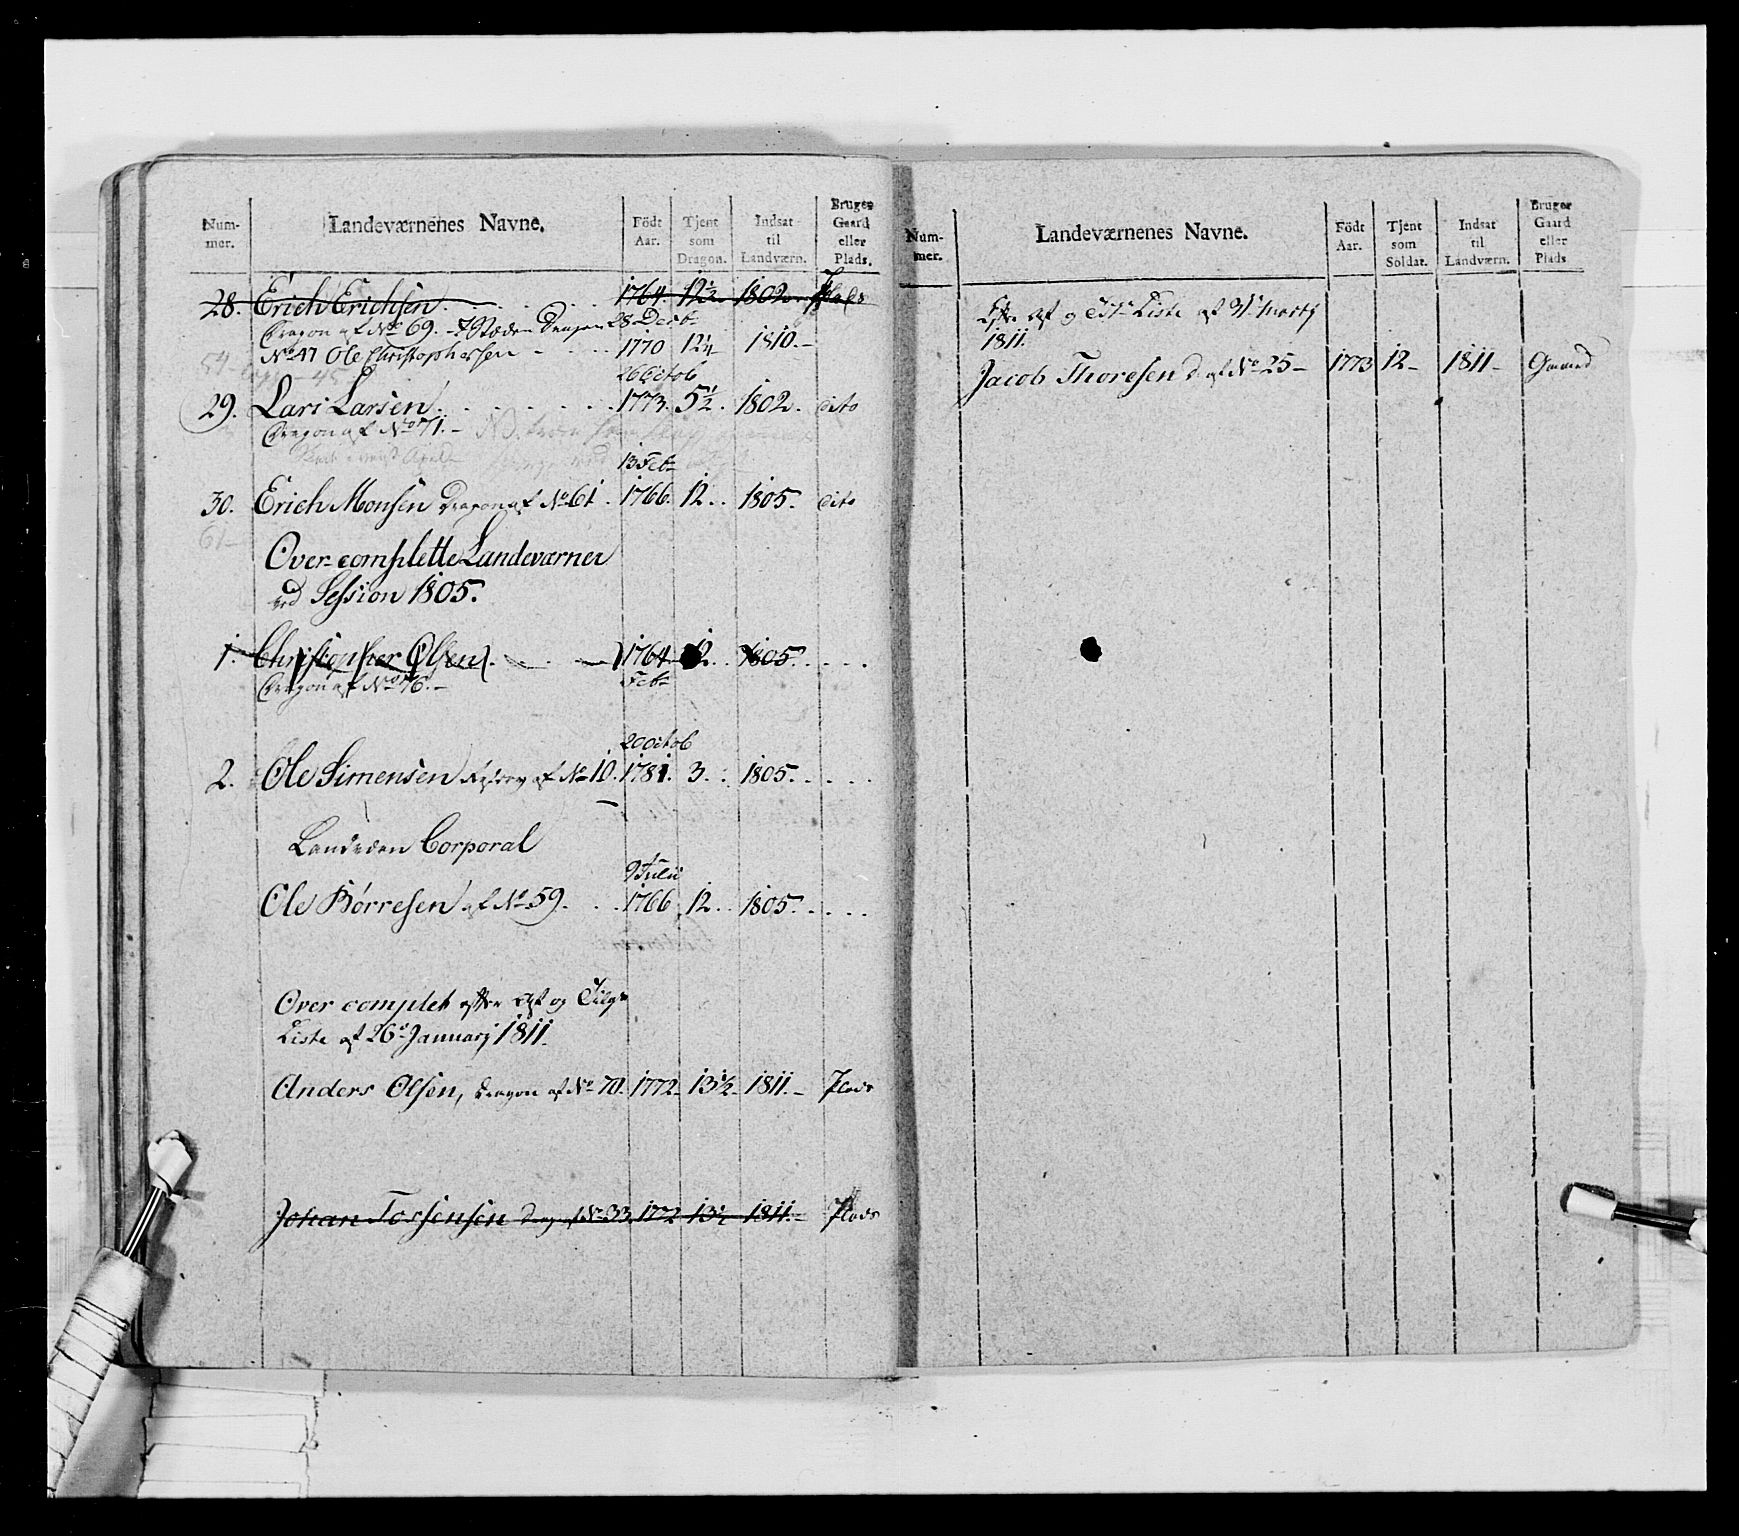 Num-
mer.
Landeværnenes Navne.
Födt
Aar.
Tjent
som
Dragon.
Indsat
til
Landværn.
Bruger
Gaard
eller
Plads.
28. Erich Erichsen 1764. 12½ 1802 Plads
Dragon af No 69. 28 Decbr
No 47 Ole Christophersen 1770 12¼ 1810.
26 Octob
29. Lars Larsen 1773. 5½. 1802. dito
Dragon af No 71.
13 Feb
30. Erich Monsen Dragon af No 61. 1766. 12.. 1805. dito
61
Over-complette Landeværner
ved Session 1805.
1. Christopher Olsen 1764 12.. 1805.
Dragon af No 76. Febr
20 Octob
2. Ole Simensen af No 10. 1781. 3. 1805.
Landeværn Corporal
9 Julii
Ole Börresen af No 59. 1766 12.. 1805.
Over complet efter Af og Tilgs
Liste af 26de Januarj 1811.
Anders Olsen, Dragon af No 70. 1772. 13½. 1811. Plads
Johan Torstensen Drag. af No 33. 1772 13½ 1811. Plads
Num-
mer.
Landeværnenes Navne.
Födt
Aar.
Tjent
som
Soldat.
Indsat
til
Landværn.
Bruger
Gaard
eller
Plads.
Efter Af og Liste af 31te Martj
1811.
Jacob Thoresen D. af No 25 1773 12 1811 Gaard